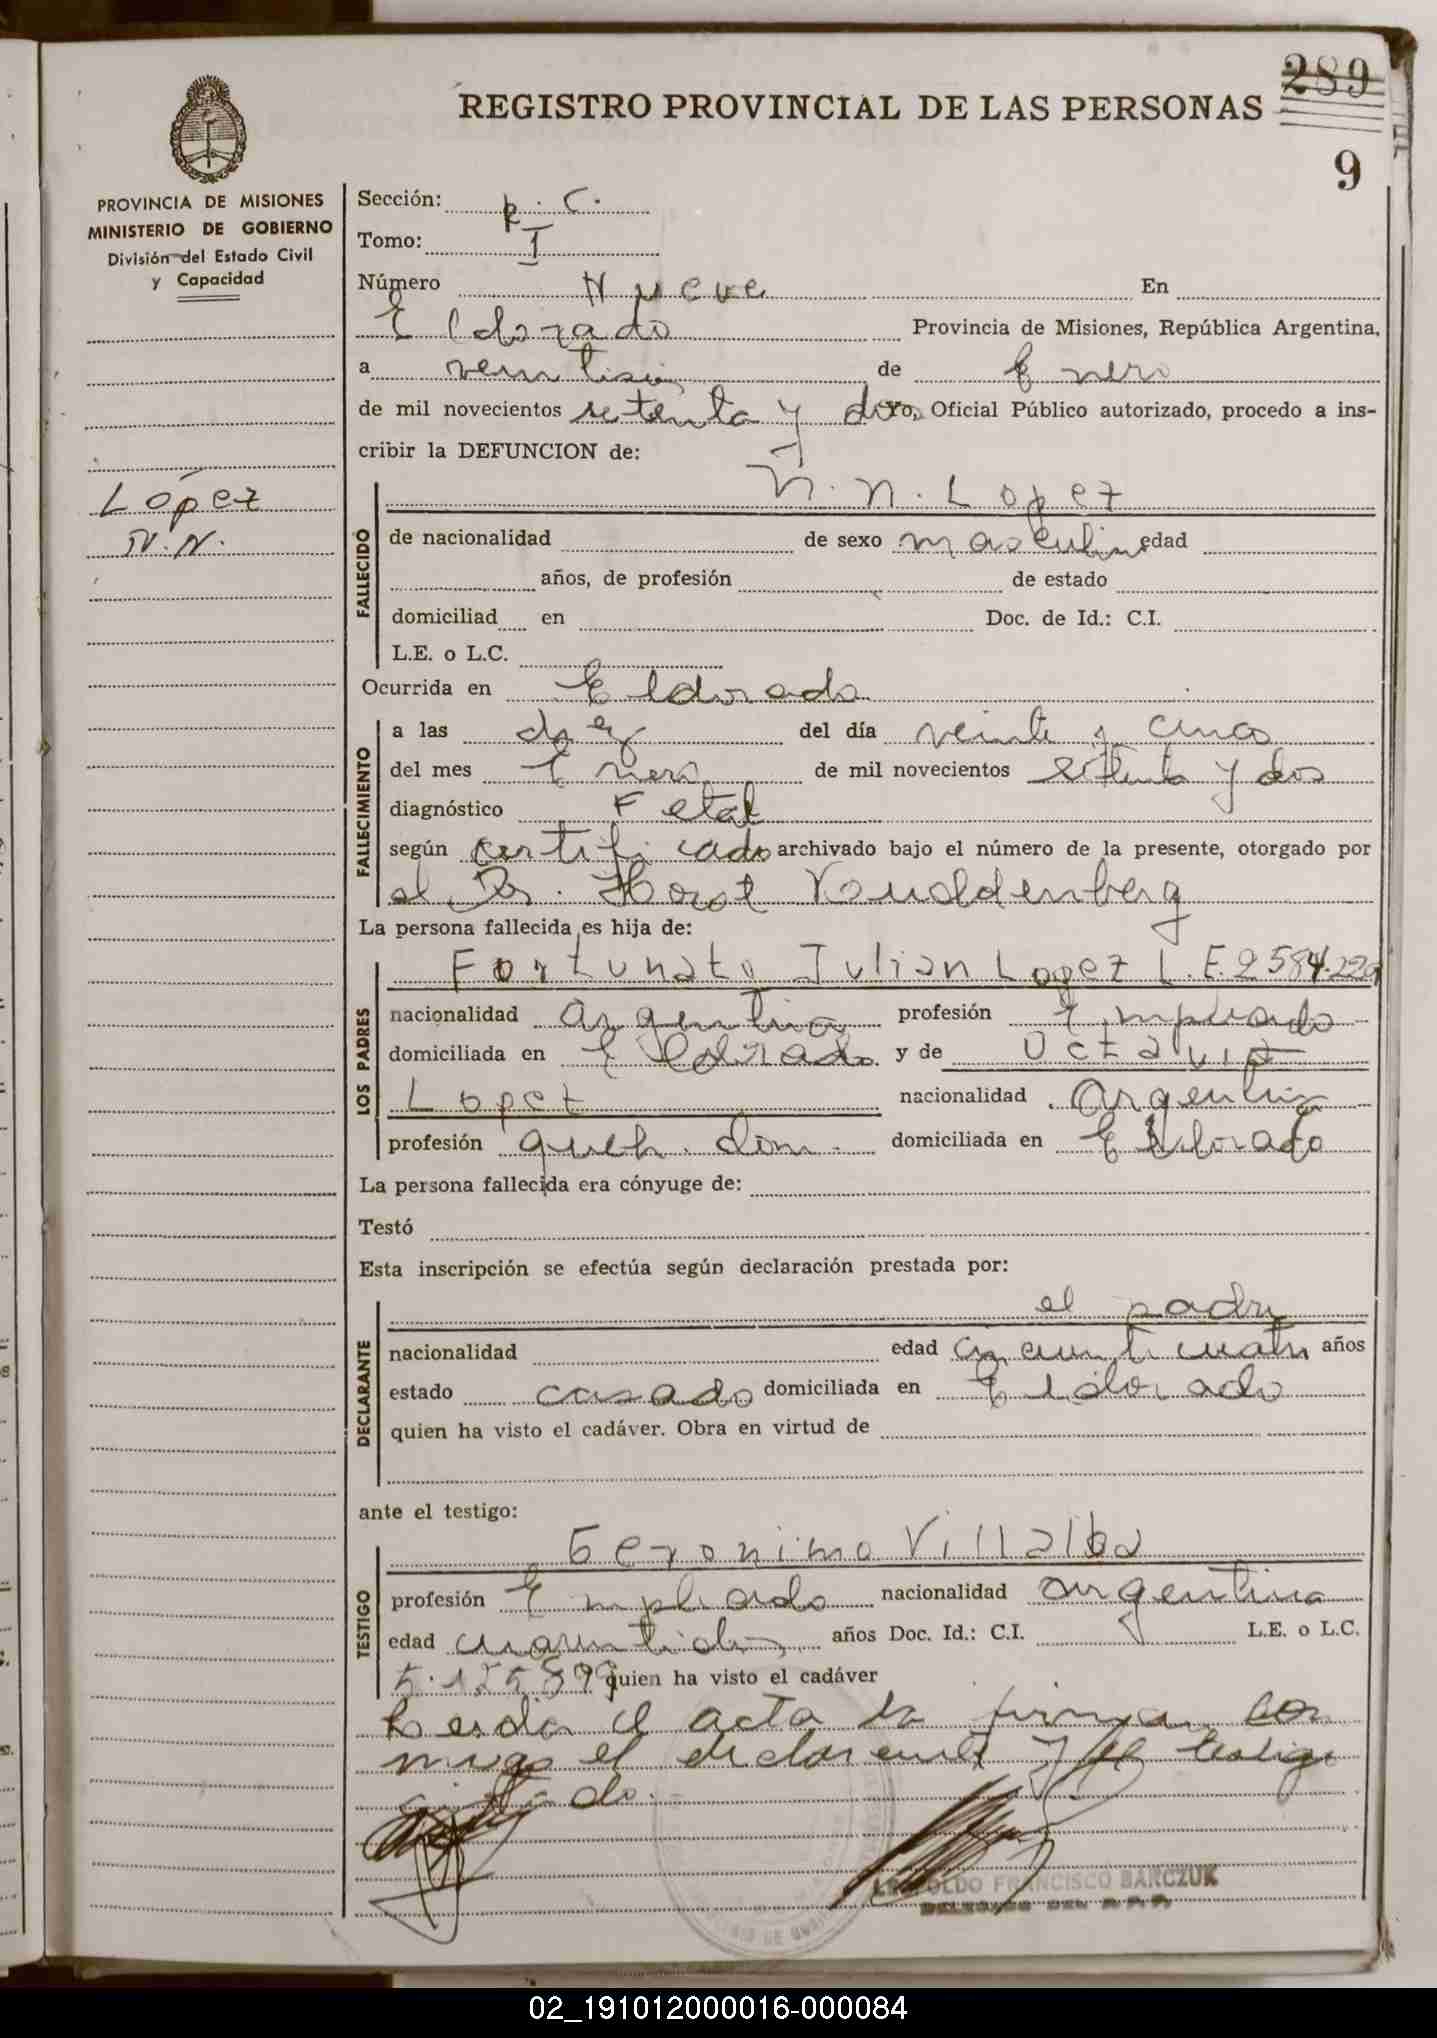 289
REGISTRO PROVINCIAL DE LAS PERSONAS
9
PROVINCIA DE MISIONES
MINISTERIO DE GOBIERNO
División del Estado Civil
y Capacidad
López
N.N.
Sección: R. C.
Tomo: I
Número Nueve En
Eldorado Provincia de Misiones, República Argentina,
a de Enero
de mil novecientos setenta y dos yo, Oficial Público autorizado, procedo a ins-
cribir la DEFUNCION de:
N.N. Lopez
FALLECIDO
de nacionalidad de sexo masculino edad
años, de profesión de estado
domiciliad en Doc. de Id.: C.I.
L.E. o L.C.
Ocurrida en Eldorado
FALLECIMIENTO
a las diez del día veinte y cinco
del mes Enero de mil novecientos setenta y dos
diagnóstico Fetal
según certificado archivado bajo el número de la presente, otorgado por
el Dr. Horst
La persona fallecida es hija de:
LOS PADRES
Fortunato Julian Lopez L.E. 2584.229
nacionalidad argentina profesión Empleado
domiciliada en Eldorado y de Octavia
Lopez nacionalidad argentina
profesión queh. dom. domiciliada en Eldorado
La persona fallecida era cónyuge de:
Testó
Esta inscripción se efectúa según declaración prestada por:
DECLARANTE
el padre
nacionalidad edad cincuenticuatro años
estado casado domiciliada en Eldorado
quien ha visto el cadáver. Obra en virtud de
ante el testigo:
TESTIGO
Geronimo Villalba
profesión Empleado nacionalidad argentina
edad cuarentidos años Doc. Id.: C.I. L.E. o L.C.
quien ha visto el cadáver
Leida el acta la firman con
migo el declarante y el testigo
citado.
LEOPOLDO FRANCISCO BARCZUK
DELEGADO DEL R.P.P.
02_191012000016-000084